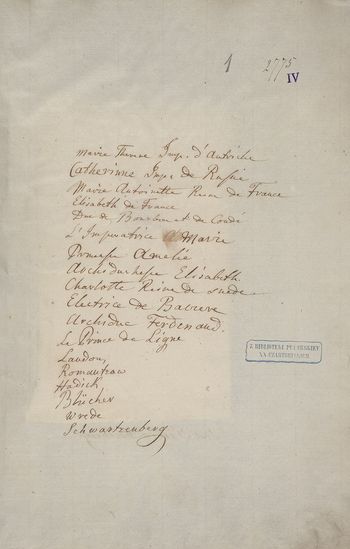 1
2775
IV
Marie Therese Imp. d'Autriche
Catherinne Imp. de Russie
Marie Antoinette Reine de France
Elisabeth de France
Duc de Bourbon et de Condé
L'Imperatrice Marie
Princesse Amelie
Archiduchesse Elisabeth
Charlotte Reine de suede
Electrice de Baviere
Archiduc Ferdenand.
Le Prince de Ligne
Laudon,
Romantzow
Hadick
Blücher
Wrede
Schwartzenberg
Z BIBLIOTEKI PUŁAWSKIEY
XX CZARTORYSKICH